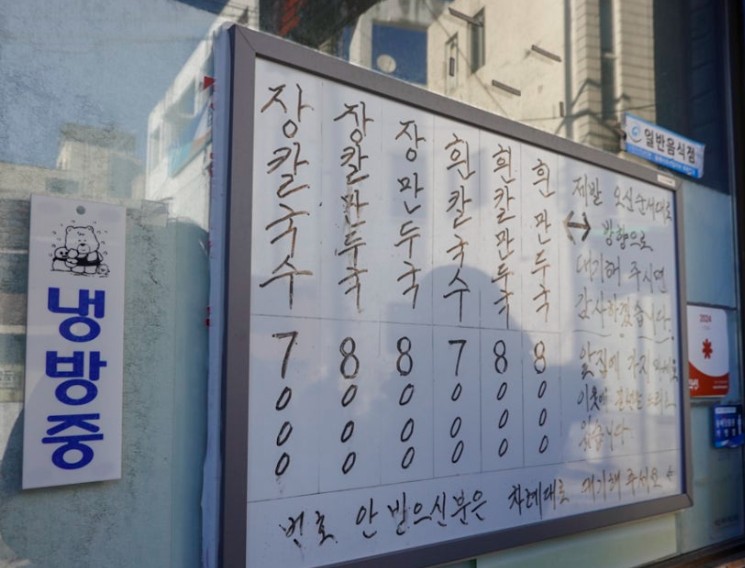 냉방중
장칼국수 7000
장칼만두국 8000
장만두국 8000
흰칼국수 7000
흰칼만두국 8000
흰만두국 8000
제발 오신순서대로
↔ 방향으로
대기해 주시면
감사하겠습니다.
앞집에 가지 마세요
이웃에
있습니다
번호 안 받으신분은 차례대로 대기해 주세요
일반음식점
2024